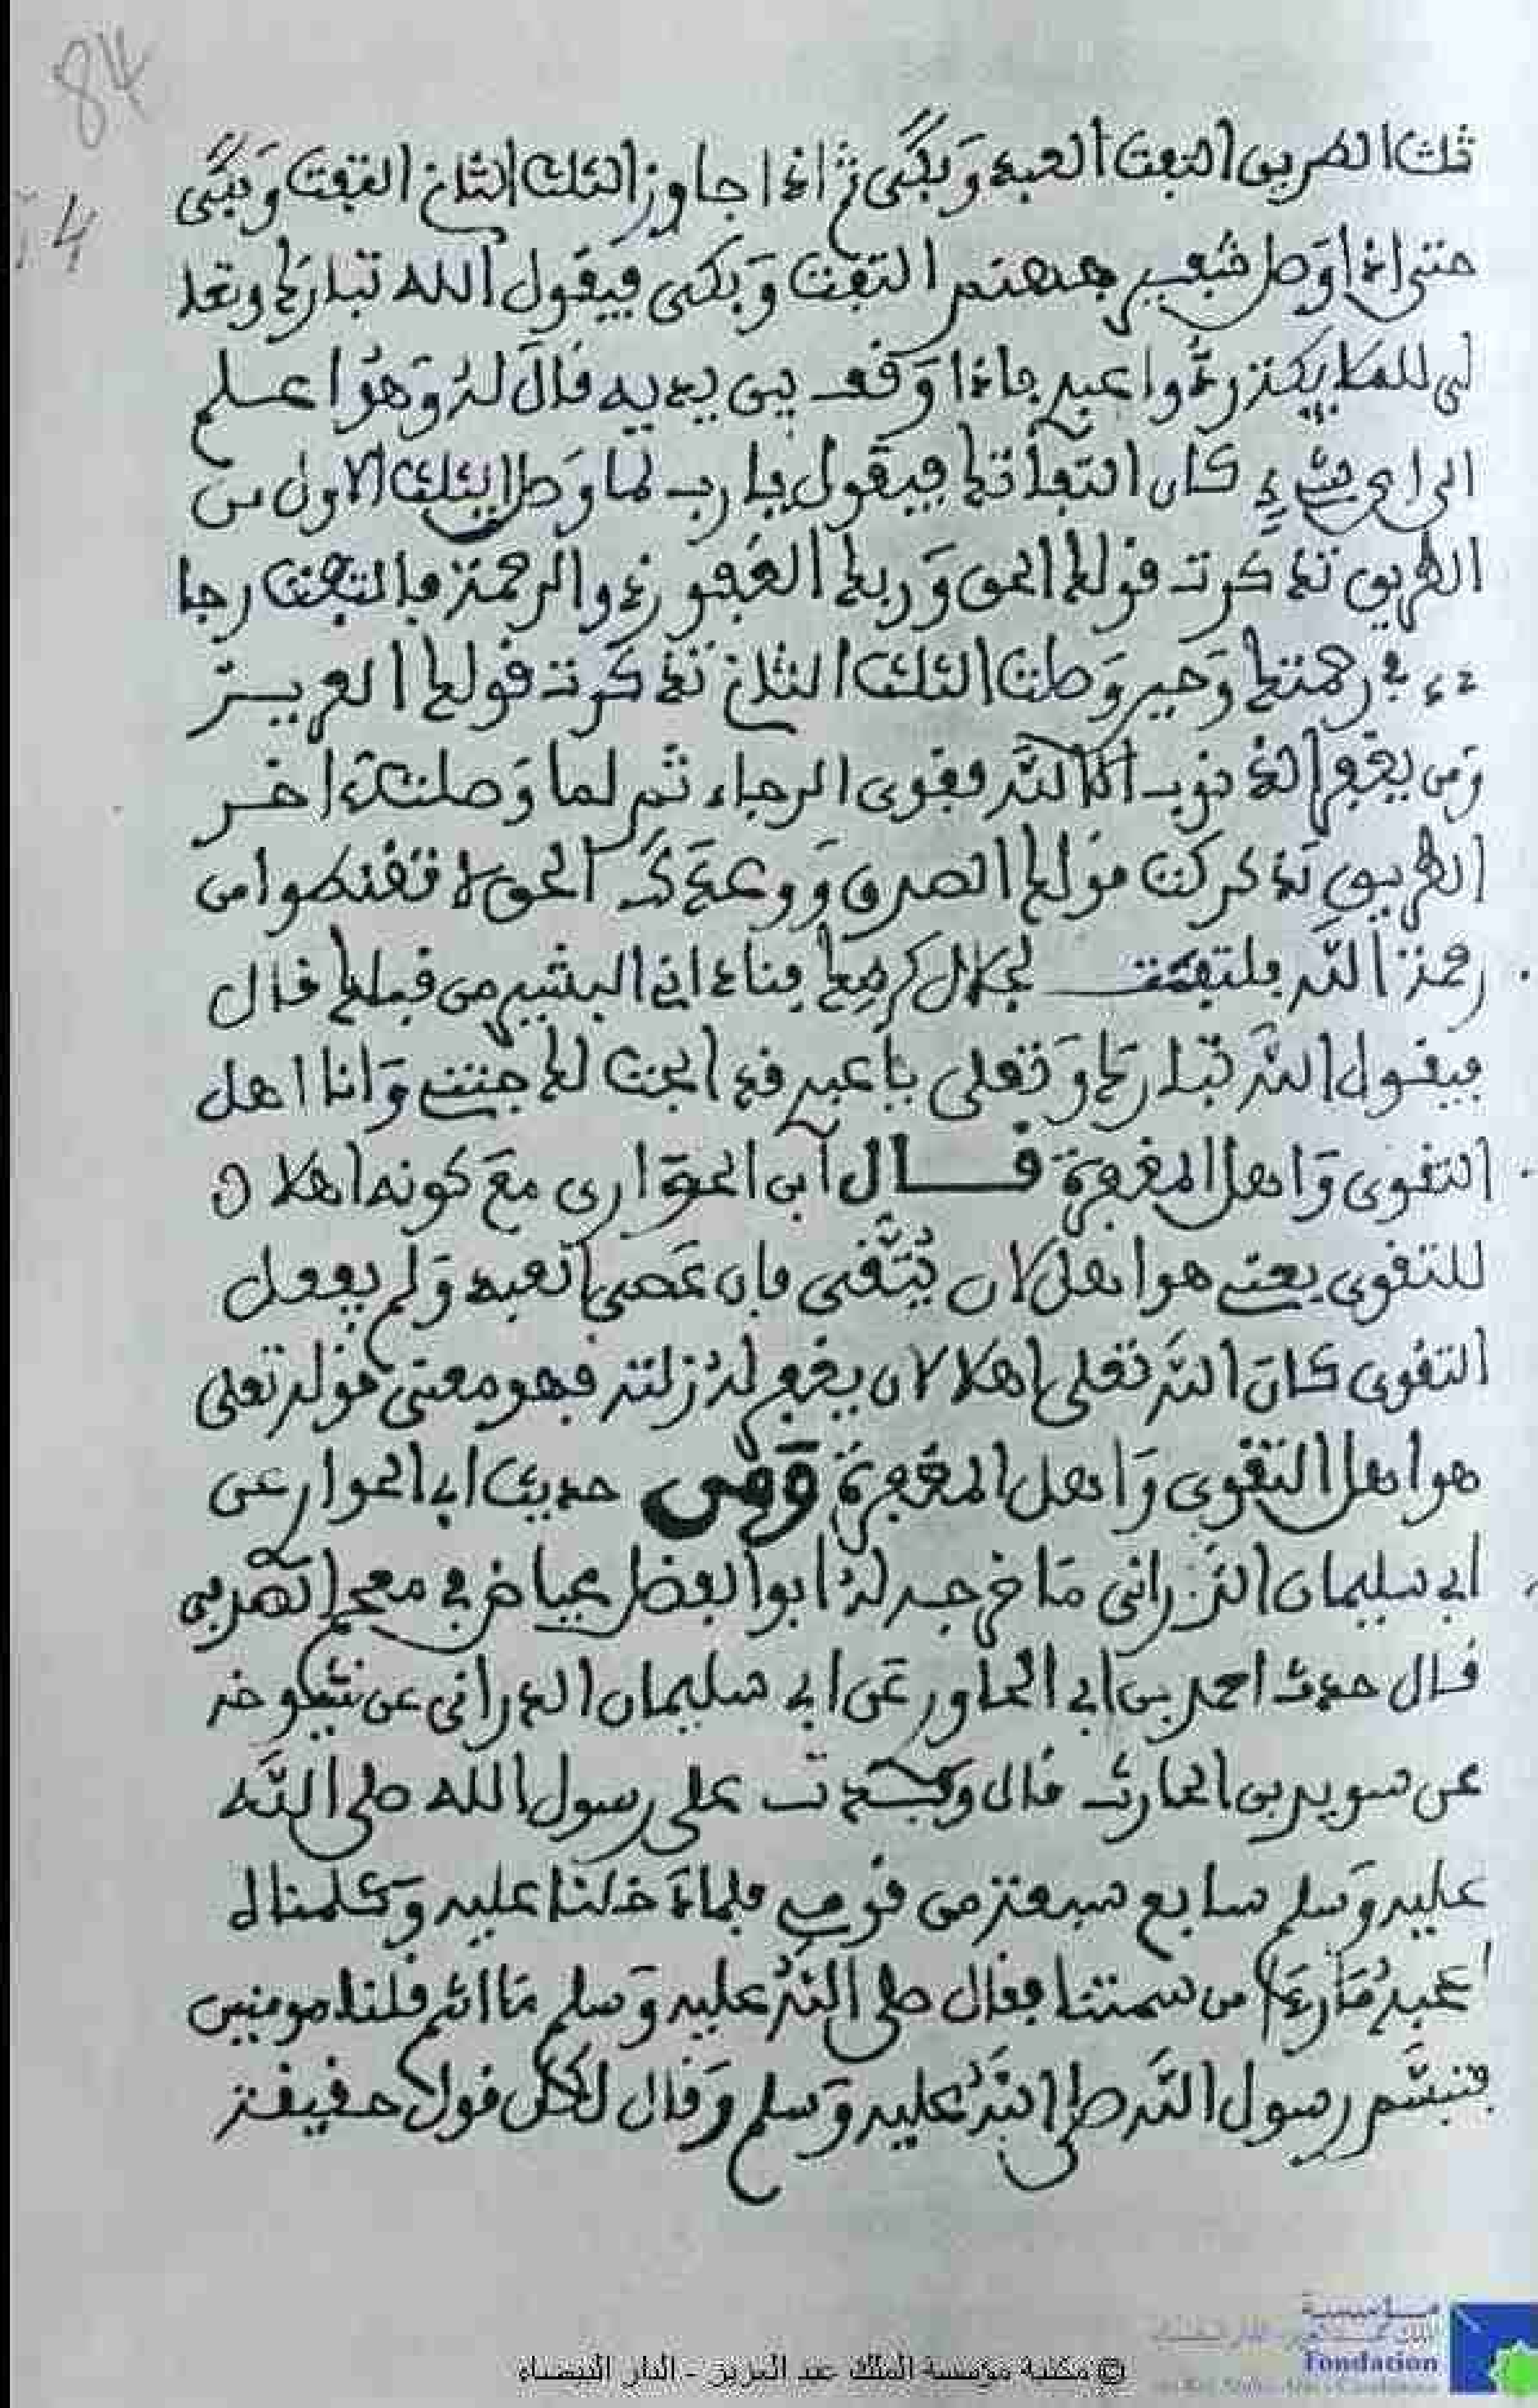 84
4
ثلث الطريق التفت العبد وَبكَى ثم اذا جاوز الثلث الثاني التفت وَبكَى
حتى اذا وَصل شفير جهنم التفت وَبكى فيقول الله تبارك وتعا
لى للملايكة ردُّوا عبدي فاذا وَقف بين يديه قال لهُ وَهُوَ اعلم
الى اي شيء كان التفاتك فيقول يا رب لما وَصل الثلث الاول من
الطريق تذكرت قولك الحق وَربك الغفور ذو الرحمة فالتفت رجا
ء في رحمتك وَحين وَصلت الثلث الثاني تذكرت قولك العزيز
وَمن يغفر الذنوب الا اللهُ فقوى الرجاء ثم لما وَصلت اخر
الطريق تذكرت قولك الصدق وَوعدك الحق لا تقنطوا من
رحمة الله فلتفت لجلال كرمك فناداني البشير من قبلك قال
فيقول الله تبارك وَتعلى يا عبدي قد ابحت لك جنتي وَانا اهل
التقوى وَاهل المغفرة قال ابن الحوارى معَ كونه اهلا
للتقوى يعني هو اهل لان يُتَّقى فان عَصى العبد وَلم يفعل
التقوى كانَ اللهُ تعلى اهلا لان يغفر لهُ زلته فهو معنى قوله تعلى
هو اهل التقوى وَاهل المغفرة وَمن حديث ابي الحوار عن
ابي سليمان الدراني مَا خرجه لهُ ابو الفضل عياض في معجم
قال حدث احمد بن ابي الحاور عَن ابي سليمان الدراني عن شيوخه
عن سويد بن الحارث قال وَفدت على رسول الله صلى الله
عليه وَسلم سابع سبعة من قومي فلما دَخلنا عليه وَكلمناه
اعجبه مَا رءا من سمتنا فقال صلى اللهُ عليه وَسلم مَا انتم قلنا مومنين
فتبسَّم رسول الله صلى اللهُ عليه وَسلم وَقال لكل قول حقيقة
مؤسسة
Fondacion
© مكتبة مؤسسة الملك عبد العزيز - الدار البيضاء